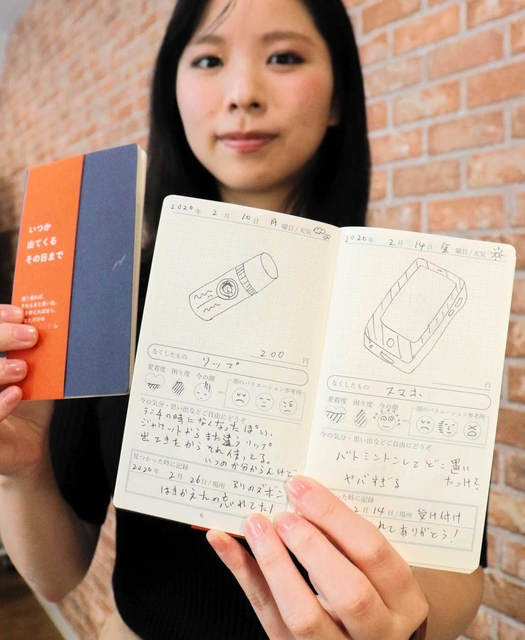 いつか
出てくる
その日まで
2020年 2月 10日 月曜日/天気
なくしたもの
リップ
200円
愛着度 困り度 今の顔
顔のバリエーション参考例
今の気分・思い出などご自由にどうぞ
ランチの時になくなったぽい。
ジャケットからまた違うリップ
出てきたからそれ使ってる。
いつのか分からんけど
見つかった時に記録
2020年 2月 26日/場所 別のズボン
はきかえたの忘れてた!
6
2020年 2月 14日 金曜日/天気
なくしたもの
スマホ
円
愛着度 困り度 今の顔
顔のバリエーション参考例
今の気分・思い出などご自由にどうぞ
バトミントンしてどこ置い
たっけ?
ヤバすぎる
った時に記録
2月 14日/場所 受け付け
れてありがとう!